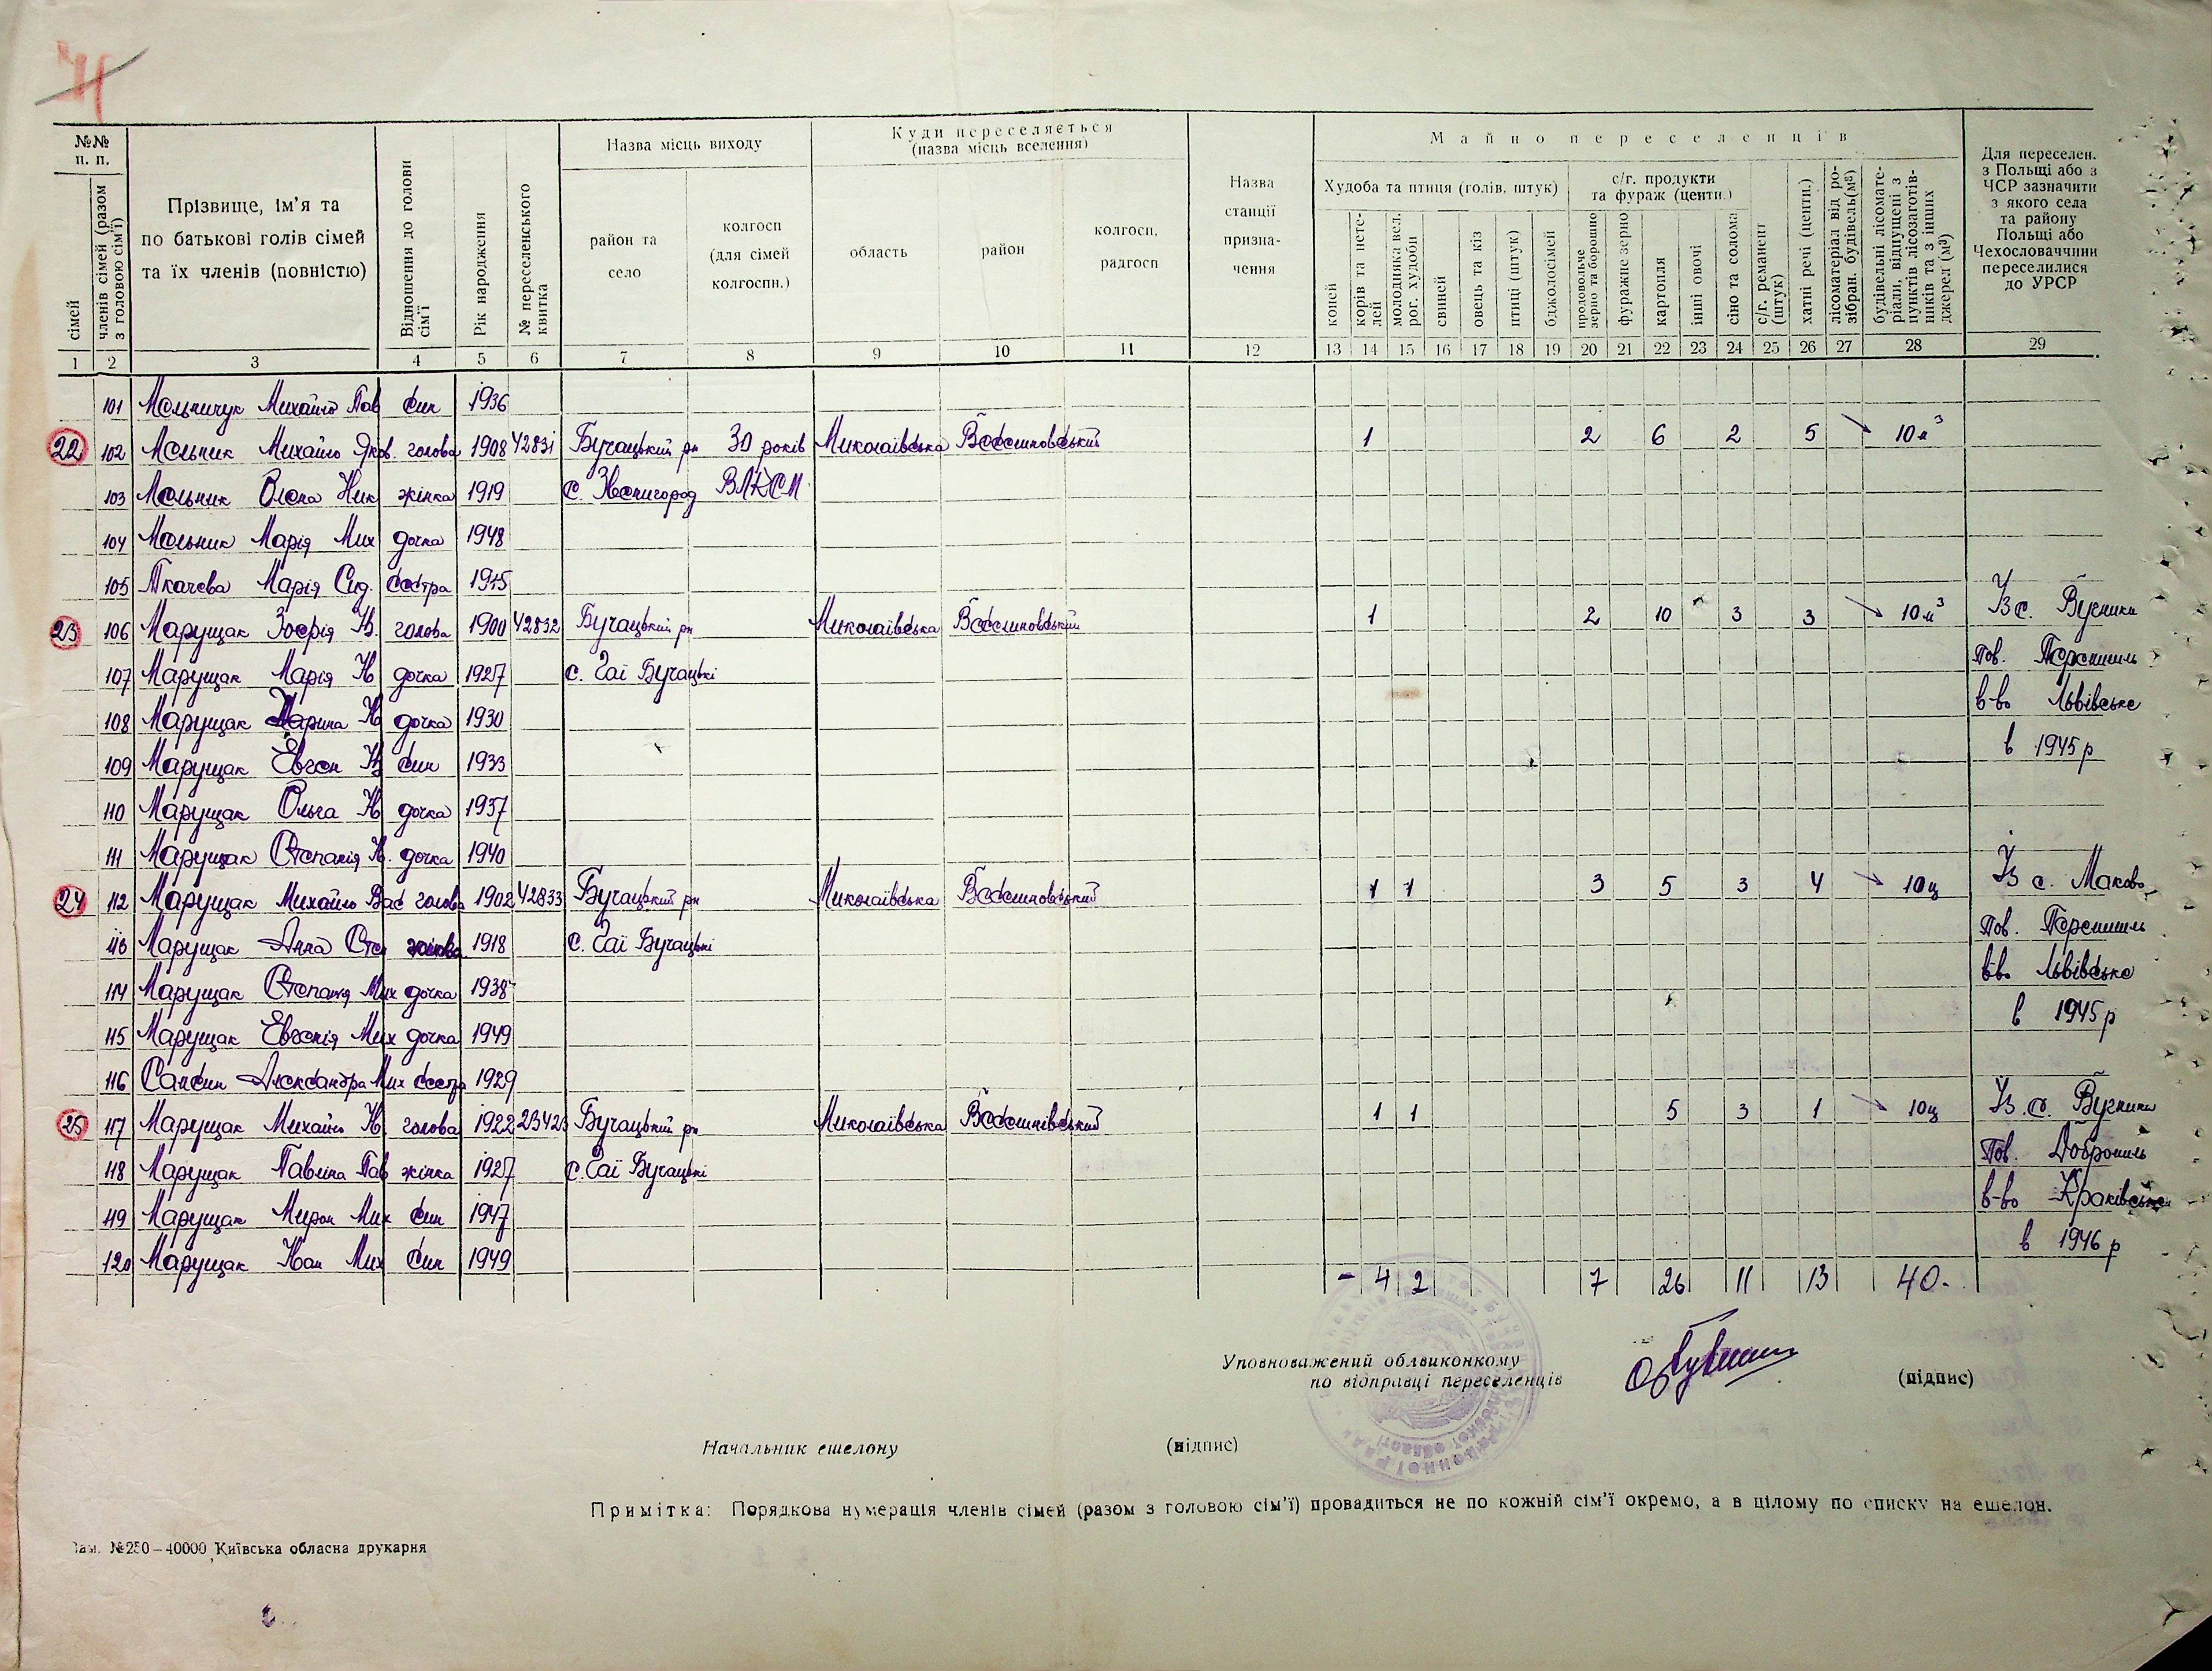 71
№№ п. п.
сімей
членів сімей (разом з головою сім'ї)
Прізвище, ім'я та по батькові голів сімей та їх членів (повністю)
Відношення до голови сім'ї
Рік народження
№ переселенського квитка
Назва місць виходу
район та село
колгосп (для сімей колгоспн.)
Куди переселяється (назва місць вселення)
область
район
колгосп, радгосп
Назва станції призна- чення
Майно переселенців
Худоба та птиця (голів, штук)
коней
корів та нете- лей
молодняка вел. рог. худоби
свиней
овець та кіз
птиці (штук)
бджолосімей
с/г. продукти та фураж (центн.)
продовольче зерно та борошно
фуражне зерно
картопля
інші овочі
сіно та солома
с/г. реманент (штук)
хатні речі (центн.)
лісоматеріал від ро- зібран. будівель (м³)
будівельні лісомате- ріали, відпущені з пунктів лісозаготів- ників та з інших джерел (м³)
Для переселен. з Польщі або з ЧСР зазначити з якого села та району Польщі або Чехословаччини переселилися до УРСР
1 2 3 4 5 6 7 8 9 10 11 12 13 14 15 16 17 18 19 20 21 22 23 24 25 26 27 28 29
101 Мельничук Михайло Пав син 1936
22 102 Мельник Михайло Яков. голова 1908 42831 Бучацький рн 30 років Миколаївська Веселиновський 1 2 6 2 5 10 м³
103 Мельник Олена Ник жінка 1919 с. Звенигород ВЛКСМ
104 Мельник Марія Мих дочка 1948
105 Ткачева Марія Сид. сестра 1915
23 106 Марущак Зофія В. голова 1900 42832 Бучацький рн Миколаївська Веселиновський 1 2 10 3 3 10 м³ Із с. Вугники
107 Марущак Марія І дочка 1927 с. Гаї Бучацькі пов. Перемишль
108 Марущак Марина І дочка 1930 в-во Львівське
109 Марущак Евген І син 1933 в 1945 р
110 Марущак Ольга І дочка 1937
111 Марущак Степанія І. дочка 1940
24 112 Марущак Михайло Вас голова 1902 42833 Бучацький рн Миколаївська Веселиновський 1 1 3 5 3 4 10 ц Із с. Маково
113 Марущак Анна Сте жінка 1918 с. Гаї Бучацькі пов. Перемишль
114 Марущак Степанія Мих дочка 1938 в-во Львівське
115 Марущак Евгенія Мих дочка 1949 в 1945 р
116 Сансин Александра Мих сестра 1929
25 117 Марущак Михайло І. голова 1922 23423 Бучацький рн Миколаївська Веселинівський 1 1 5 3 1 10 ц Із с. Вугники
118 Марущак Павліна Пав жінка 1927 с. Гаї Бучацькі пов. Добромиль
119 Марущак Мирон Мих син 1947 в-во Краківське
120 Марущак Іван Мих син 1949 в 1946 р
- 4 2 7 26 11 13 40.-
Уповноважений облвиконкому
по відправці переселенців
(підпис)
Начальник ешелону (підпис)
Примітка: Порядкова нумерація членів сімей (разом з головою сім'ї) провадиться не по кожній сім'ї окремо, а в цілому по списку на ешелон.
Зам. №250–40000 Київська обласна друкарня